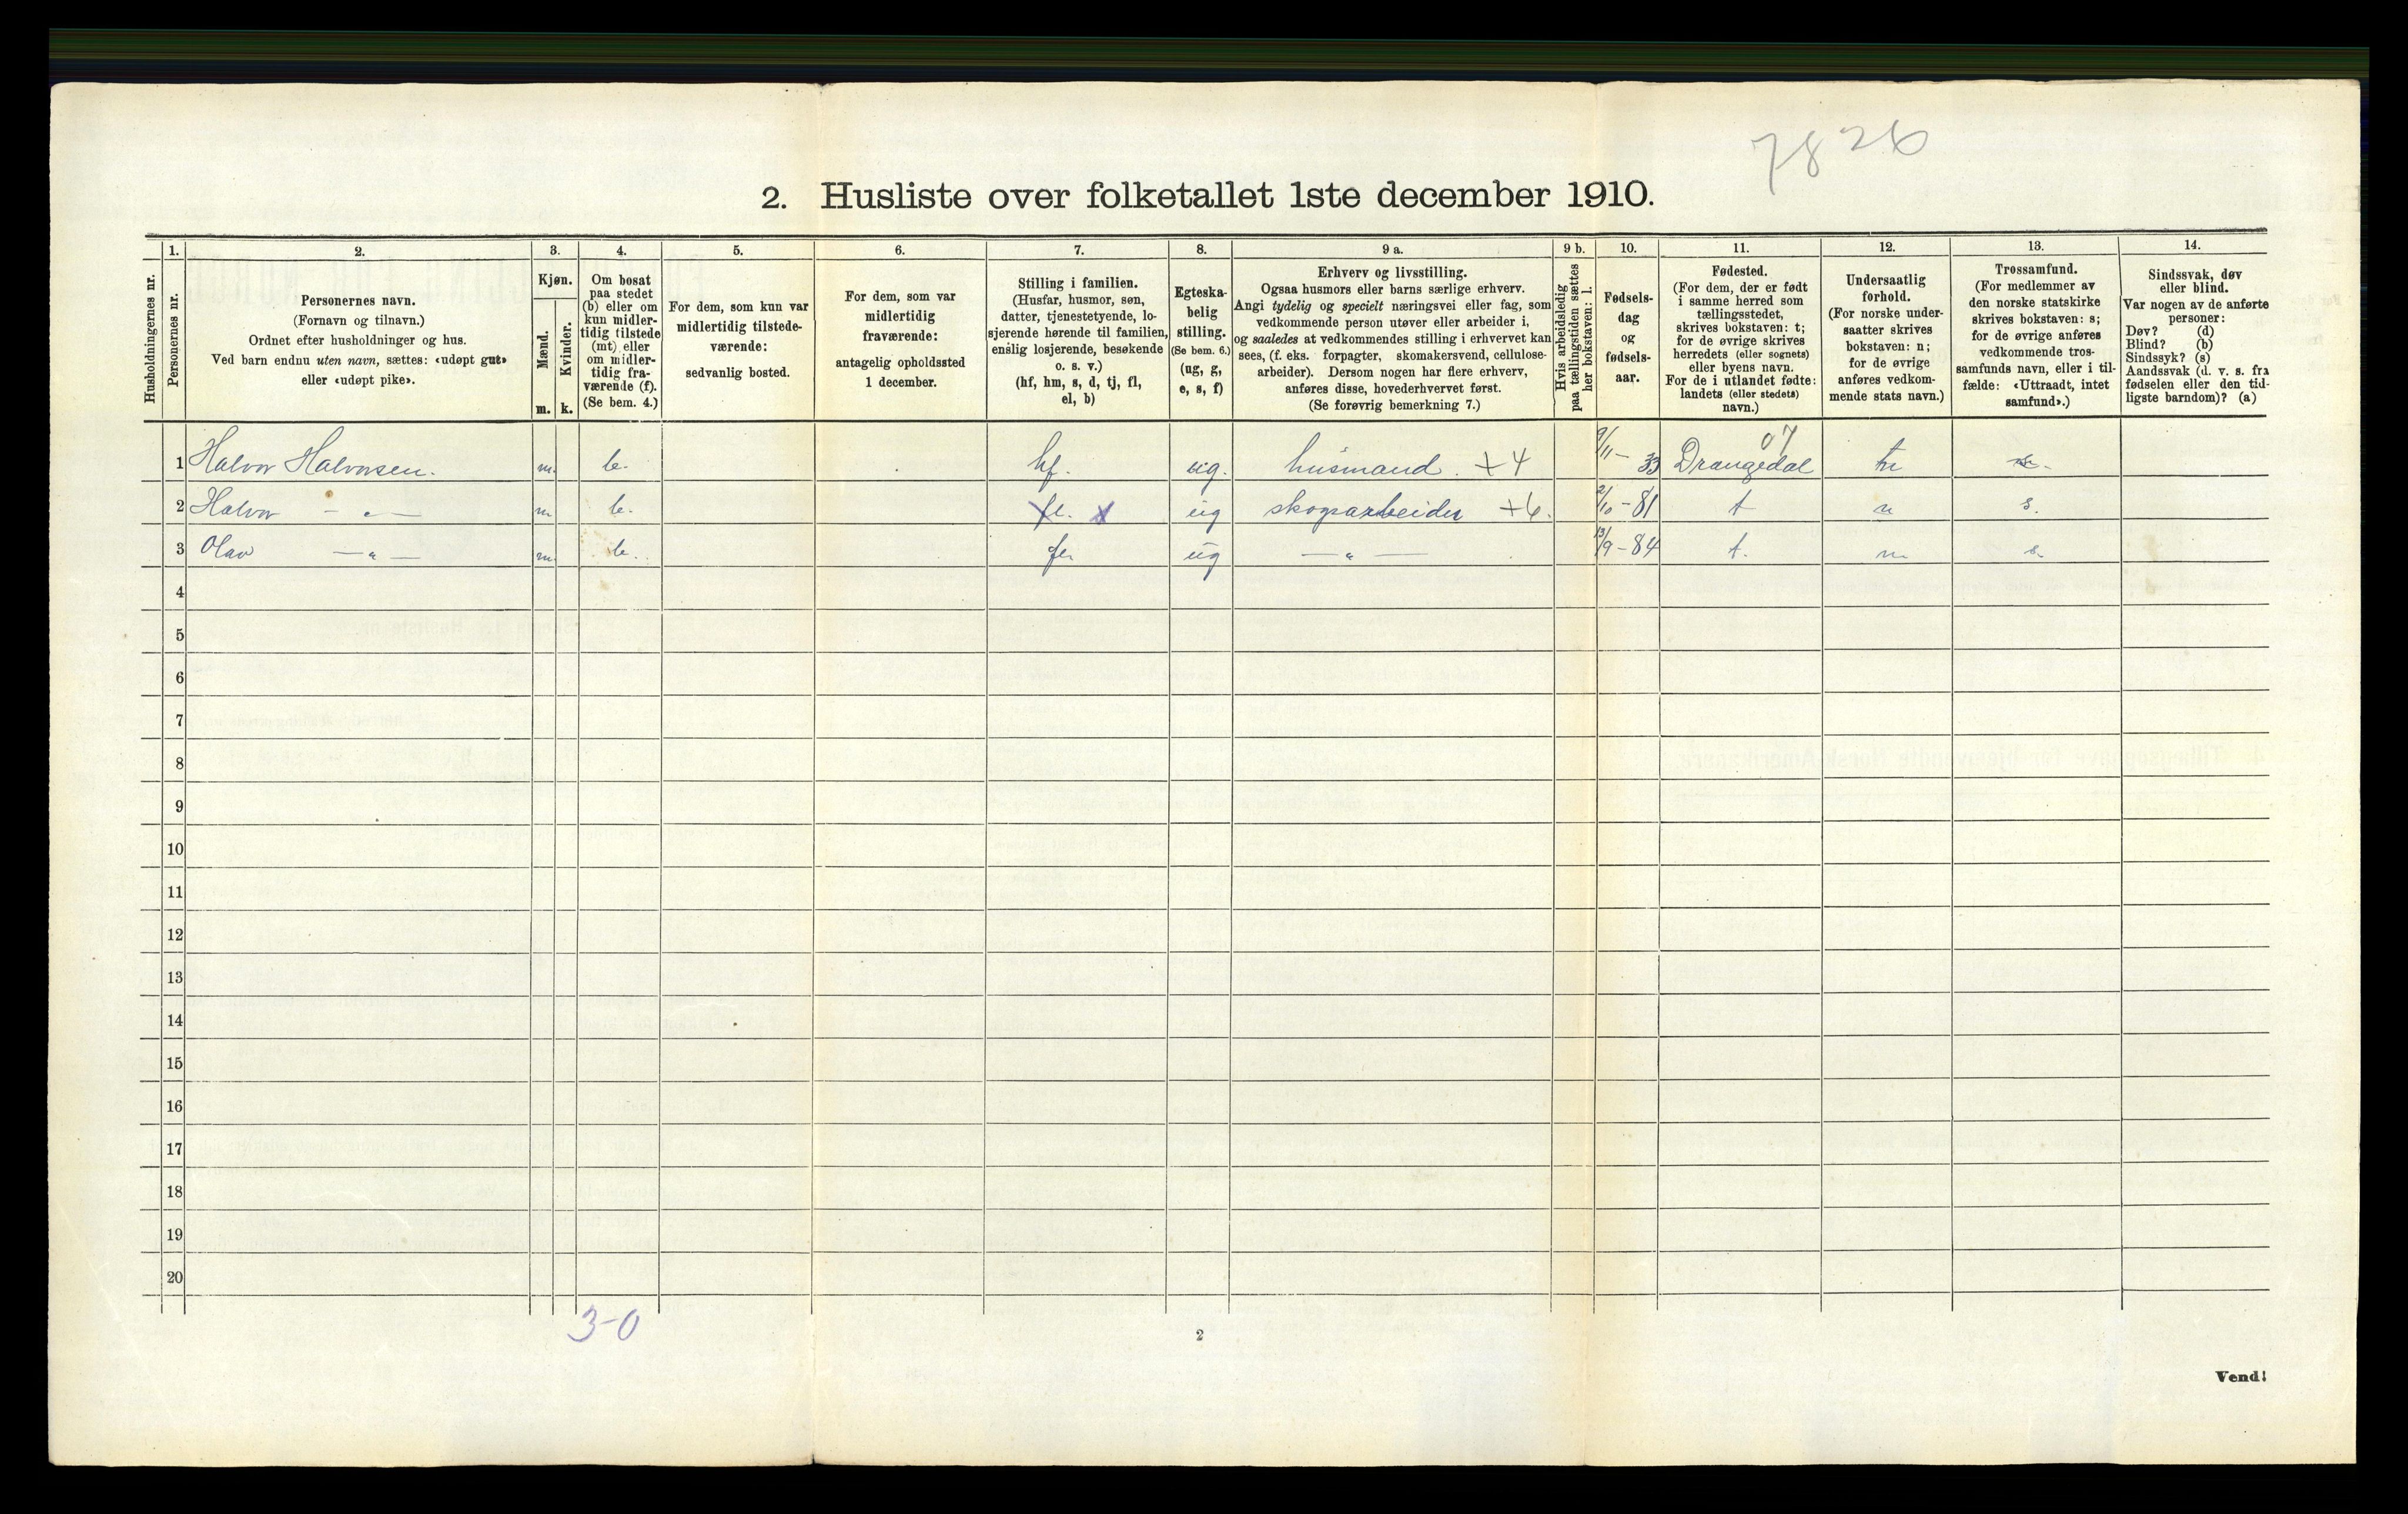 7826
2. Husliste over folketallet 1ste december 1910.
Husholdningernes nr.
1.
Personernes nr.
2.
Personernes navn.
(Fornavn og tilnavn.)
Ordnet efter husholdninger og hus.
Ved barn endnu uten navn, sættes: «udøpt gut»
eller «udøpt pike».
3.
Kjøn.
Mænd.
Kvinder.
m. k.
4.
Om bosat
paa stedet
(b) eller om
kun midler-
tidig tilstede
(mt) eller
om midler-
tidig fra-
værende (f).
(Se bem. 4.)
5.
For dem, som kun var
midlertidig tilstede-
værende:
sedvanlig bosted.
6.
For dem, som var
midlertidig
fraværende:
antagelig opholdssted
1 december.
7.
Stilling i familien.
(Husfar, husmor, søn,
datter, tjenestetyende, lo-
sjerende hørende til familien,
enslig losjerende, besøkende
o. s. v.)
(hf, hm, s, d, tj, fl,
el, b)
8.
Egteska-
belig
stilling.
(Se bem. 6.)
(ug, g,
e, s, f)
9 a.
Erhverv og livsstilling.
Ogsaa husmors eller barns særlige erhverv.
Angi tydelig og specielt næringsvei eller fag, som
vedkommende person utøver eller arbeider i,
og saaledes at vedkommendes stilling i erhvervet kan
sees, (f. eks. forpagter, skomakersvend, cellulose-
arbeider). Dersom nogen har flere erhverv,
anføres disse, hovederhvervet først.
(Se forøvrig bemerkning 7.)
9 b.
Hvis arbeidsledig
paa tællingstiden sættes
her bokstaven: l.
10.
Fødsels-
dag
og
fødsels-
aar.
11.
Fødested.
(For dem, der er født
i samme herred som
tællingsstedet,
skrives bokstaven: t;
for de øvrige skrives
herredets (eller sognets)
eller byens navn.
For de i utlandet fødte:
landets (eller stedets)
navn.)
12.
Undersaatlig
forhold.
(For norske under-
saatter skrives
bokstaven: n;
for de øvrige
anføres vedkom-
mende stats navn.)
13.
Trossamfund.
(For medlemmer av
den norske statskirke
skrives bokstaven: s;
for de øvrige anføres
vedkommende tros-
samfunds navn, eller i til-
fælde: «Uttraadt, intet
samfund».)
14.
Sindssvak, døv
eller blind.
Var nogen av de anførte
personer:
Døv? (d)
Blind? (b)
Sindssyk? (s)
Aandssvak (d. v. s. fra
fødselen eller den tid-
ligste barndom)? (a)
1 Halvor Halvorsen. m. b. hf. ug. husmand. +4 9/11 - 33 Drangedal 07 n s.
2 Halvor - „ - m b. fl. x ug skogsarbeider +6. 2/10 - 81 t n s.
3 Olav - „ - m. b. fl. ug - „ - 13/9 - 84 t. n. s.
4
5
6
7
8
9
10
11
12
13
14
15
16
17
18
19
20
3-0
2
Vend!